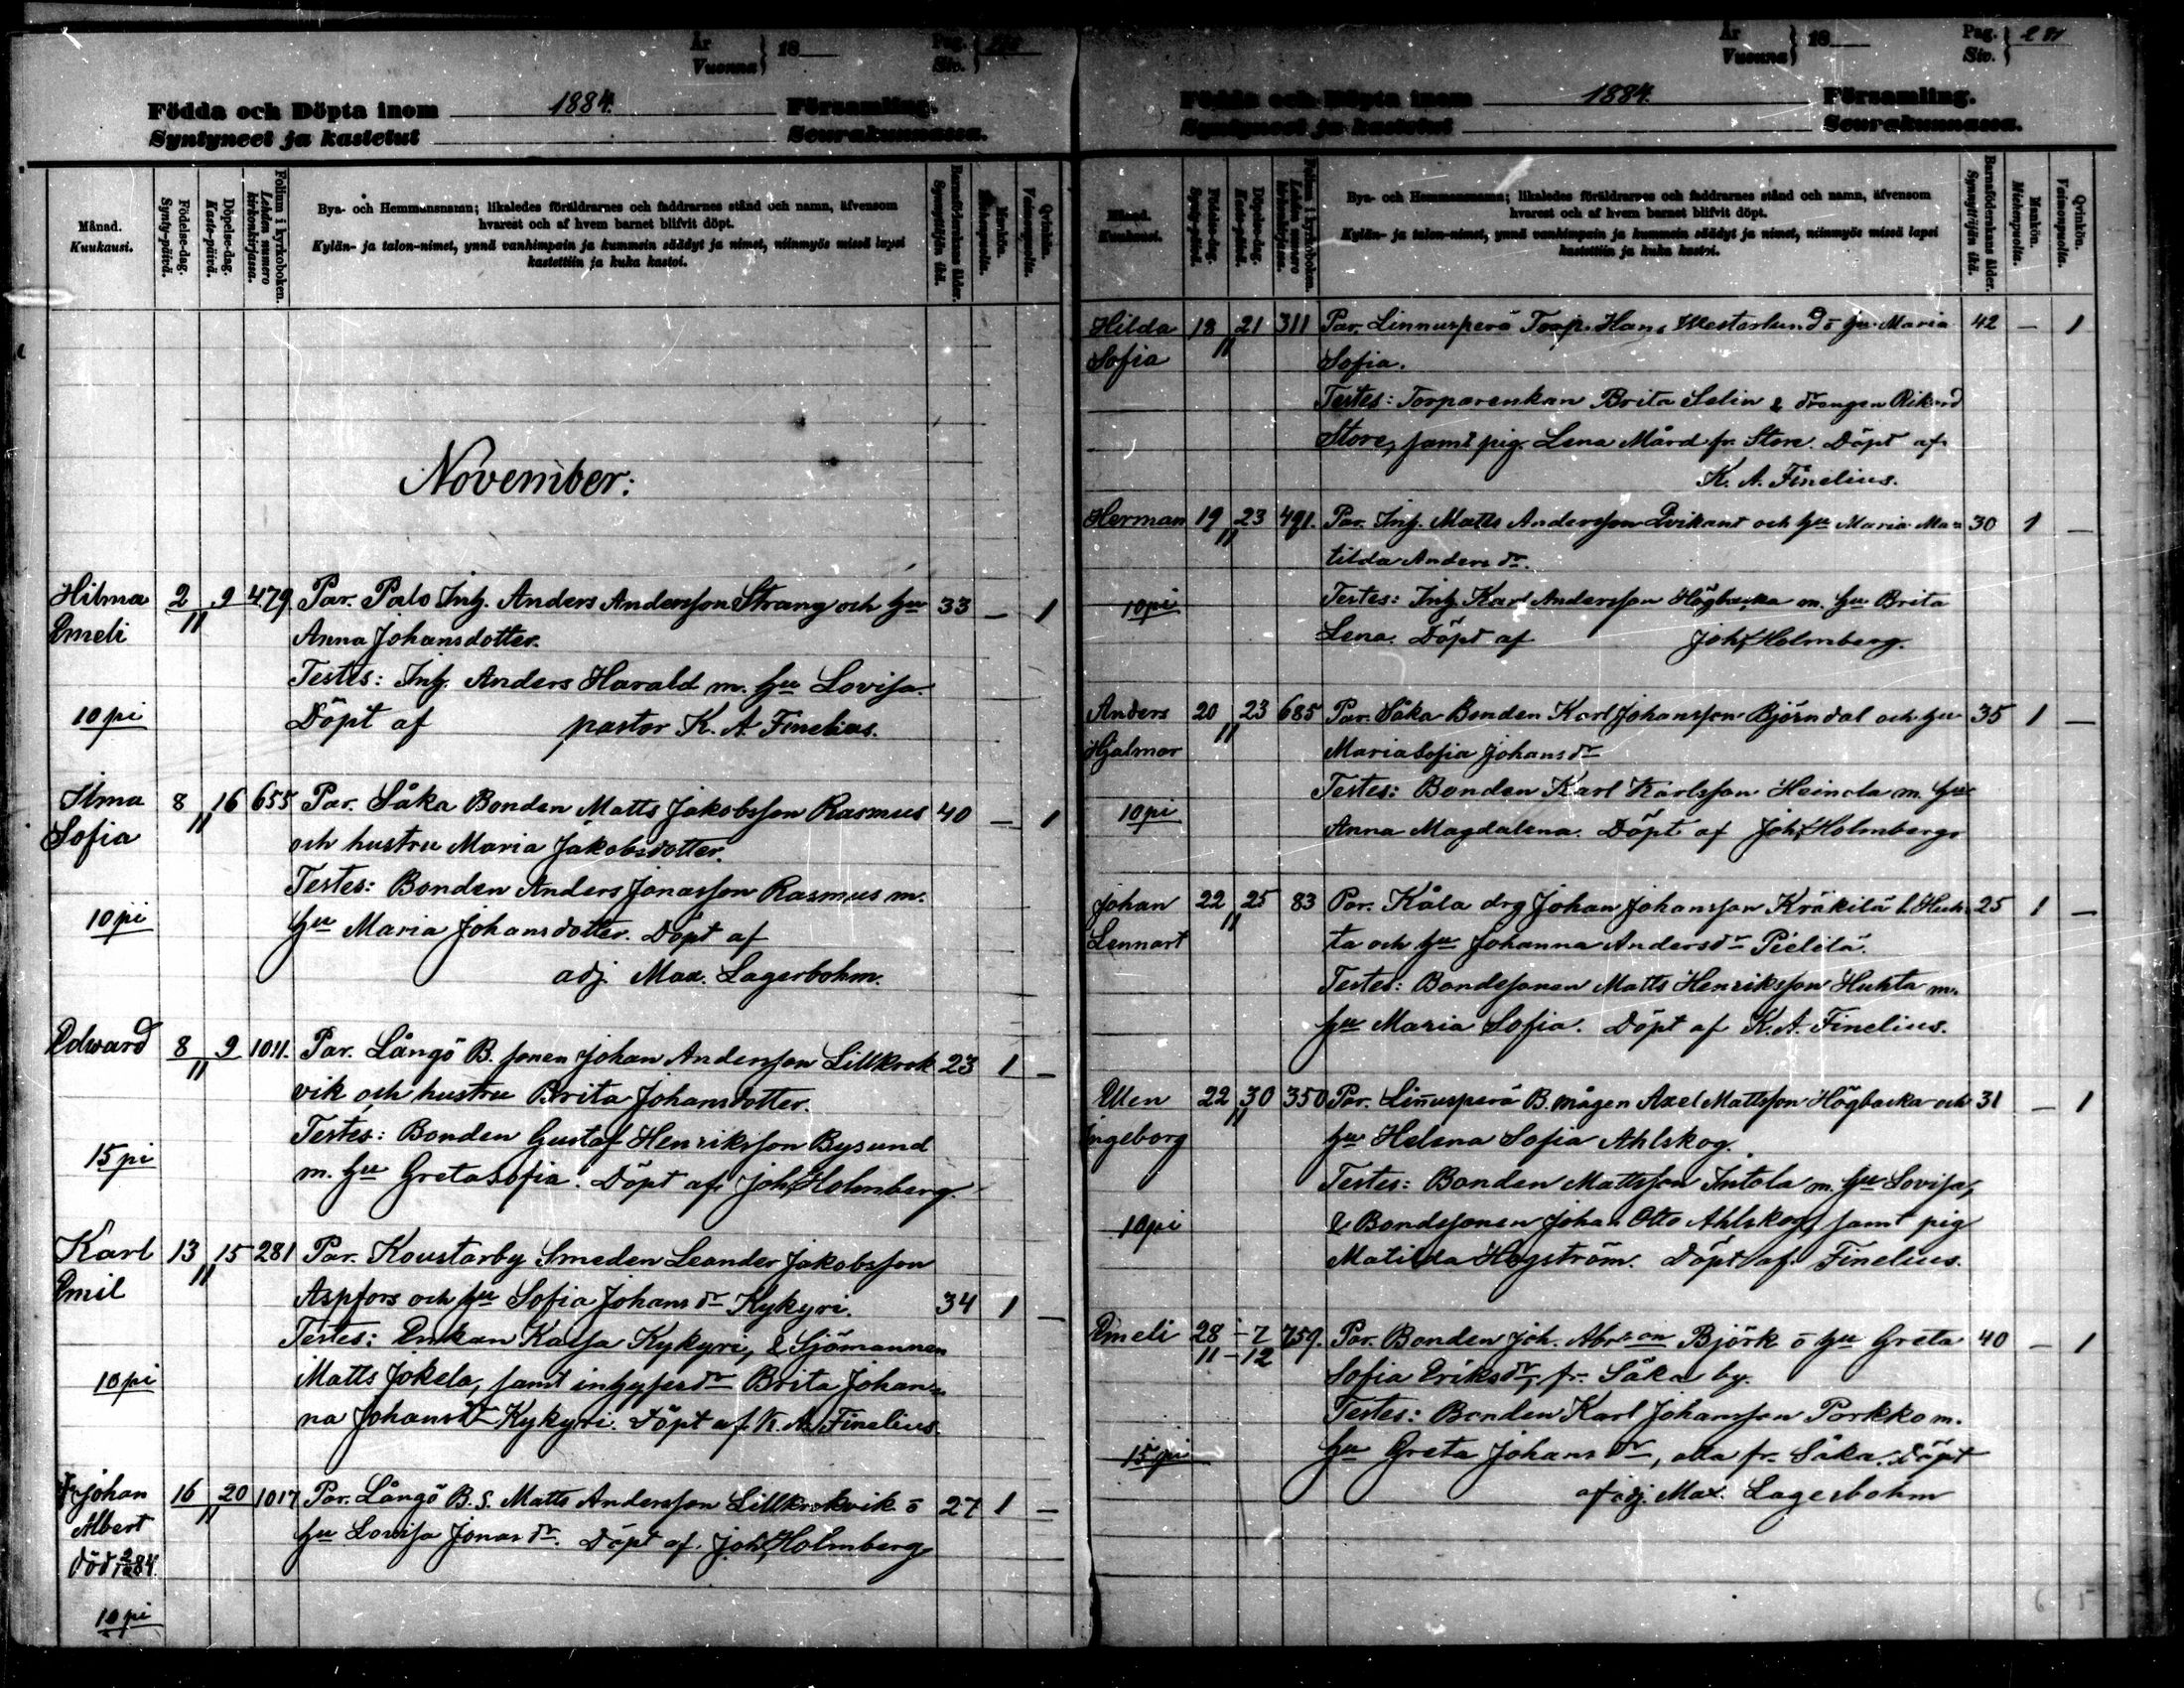 År
Vuonna
18
Pag.
Siv.
Födda och Döpta inom 1884. Församling.
Syntyneet ja kastetut Seurakunnassa.
Månad.
Kuukausi.
Födelse-dag.
Synty-päivä.
Döpelse-dag.
Kaste-päivä.
Folium i kyrkoboken.
Lehden numero kirkonkirjassa.
Bya- och Hemmansnamn; likaledes föräldrarnes och faddrarnes stånd och namn, äfvensom
hvarest och af hvem barnet blifvit döpt.
Kylän- ja talon-nimet, ynnä vanhimpain ja kummein säädyt ja nimet, niinmyös missä lapsi
kastettiin ja kuka kastoi.
Barnaföderskans ålder.
Synnyttäjän ikä.
Mankön.
Miehenpuolia.
Qvinkön.
Vaimonpuolia.
November:
Hilma 2 9 479 Par. Palo Inh. Anders Andersson Strang och hu 33 — 1
Emeli 11 Anna Johansdotter.
Testes: Inh. Anders Harald m. hu Lovisa.
10 pi Döpt af pastor K. A. Finelius.
Ilma 8 16 655 Par. Såka Bonden Matts Jakobsson Rasmus 40 — 1
Sofia 11 och hustru Maria Jakobsdotter.
Testes: Bonden Anders Jonasson Rasmus m.
10 pi hu Maria Johansdotter. Döpt af
adj. Max. Lagerbohm.
Edward 8 9 1011. Par. Långö B. sonen Johan Andersson Lillkrok 23 1 —
11 vik och hustru Brita Johansdotter.
Testes: Bonden Gustaf Henriksson Bysund
15 pi m. hu Greta Sofia. Döpt af Joh. Holmberg.
Karl 13 15 281 Par. Koustarby Smeden Leander Jakobsson
Emil 11 Aspfors och hu Sofia Johansdr Kykyri. 34 1 —
Testes: Enkan Kajsa Kykyri, & Sjömannen
10 pi Matts Jokela, samt inhysesdr Brita Johan=
na Johansdr Kykyri. Döpt af K. A. Finelius.
Johan 16 20 1017 Par. Långö B. S. Matts Andersson Lillkrokvik o 27 1 —
Albert 11 hu Lovisa Jonasdr. Döpt af. Joh. Holmberg
död 2/12 84.
10 pi
År
Vuonna
18
Pag.
Siv.
281
Födda och Döpta inom 1884. Församling.
Syntyneet ja kastetut Seurakunnassa.
Månad.
Kuukausi.
Födelse-dag.
Synty-päivä.
Döpelse-dag.
Kaste-päivä.
Folium i kyrkoboken.
Lehden numero kirkonkirjassa.
Bya- och Hemmansnamn; likaledes föräldrarnes och faddrarnes stånd och namn, äfvensom
hvarest och af hvem barnet blifvit döpt.
Kylän- ja talon-nimet, ynnä vanhimpain ja kummein säädyt ja nimet, niinmyös missä lapsi
kastettiin ja kuka kastoi.
Barnaföderskans ålder.
Synnyttäjän ikä.
Mankön.
Miehenpuolia.
Qvinkön.
Vaimonpuolia.
Hilda 18 21 311 Par. Linnusperä Torp. Hans Westerlund o hu Maria 42 — 1
Sofia 11 Sofia.
Testes: Torparenkan Brita Selin & drängen Rikard
Store, samt pig. Lena Mård fr. Store. Döpt af
K. A. Finelius.
Herman 19 23 491. Par. Inh. Matts Andersson Qvikant och hu Maria Ma= 30 1 —
11 tilda Andersdr.
10 pi Testes: Inh Karl Andersson Högbacka m. hu Brita
Lena. Döpt af Joh. Holmberg.
Anders 20 23 685 Par. Såka Bonden Karl Johansson Björndal och hu 35 1 —
Hjalmar 11 Maria Sofia Johansdr
Testes: Bonden Karl Karlsson Heinola m. hu
10 pi Anna Magdalena. Döpt af Joh. Holmberg.
Johan 22 25 83 Par. Kåla drg Johan Johansson Kräkilä l. Huh- 25 1 —
Lennart 11 ta och hu Johanna Andersdr Pielilä.
Testes: Bondesonen Matts Henriksson Huhta m.
hu Maria Sofia. Döpt af K. A. Finelius.
Ellen 22 30 350 Par. Linnusperä B. mågen Axel Mattsson Högbacka och 31 — 1
Ingeborg 11 hu Helena Sofia Ahlskog.
Testes: Bonden Mattsson Intola m. hu Lovisa,
10 pi & Bondesonen Johan Otto Ahlskog, samt pig
Matilda Hegström. Döpt af Finelius.
Emeli 28 — 7 759. Par. Bonden Joh. Abr:son Björk o hu Greta 40 — 1
11 — 12 Sofia Eriksdr, fr. Såka by.
Testes: Bonden Karl Johansson Porkko m.
15 pi hu Greta Johansdr, alla fr. Såka. Döpt
af adj. Max. Lagerbohm
6 5